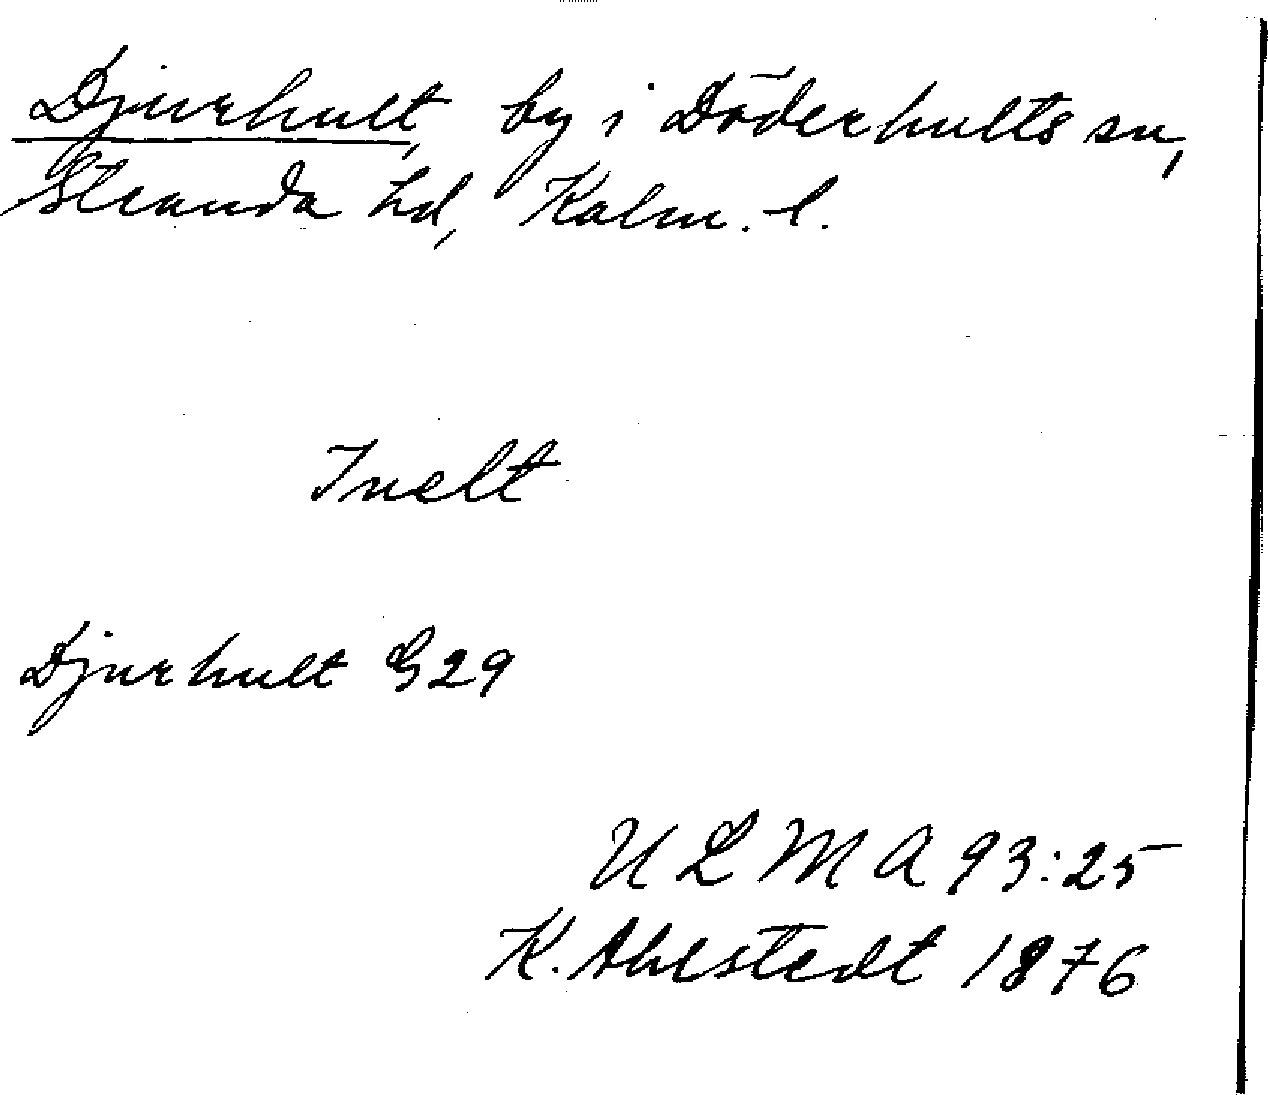 Djurhult, by i Döderhults sn,
Stranda hd, Kalm. l.
Juelt
Djurhult G29
ULMA 93:25
K. Ahlstedt 1876